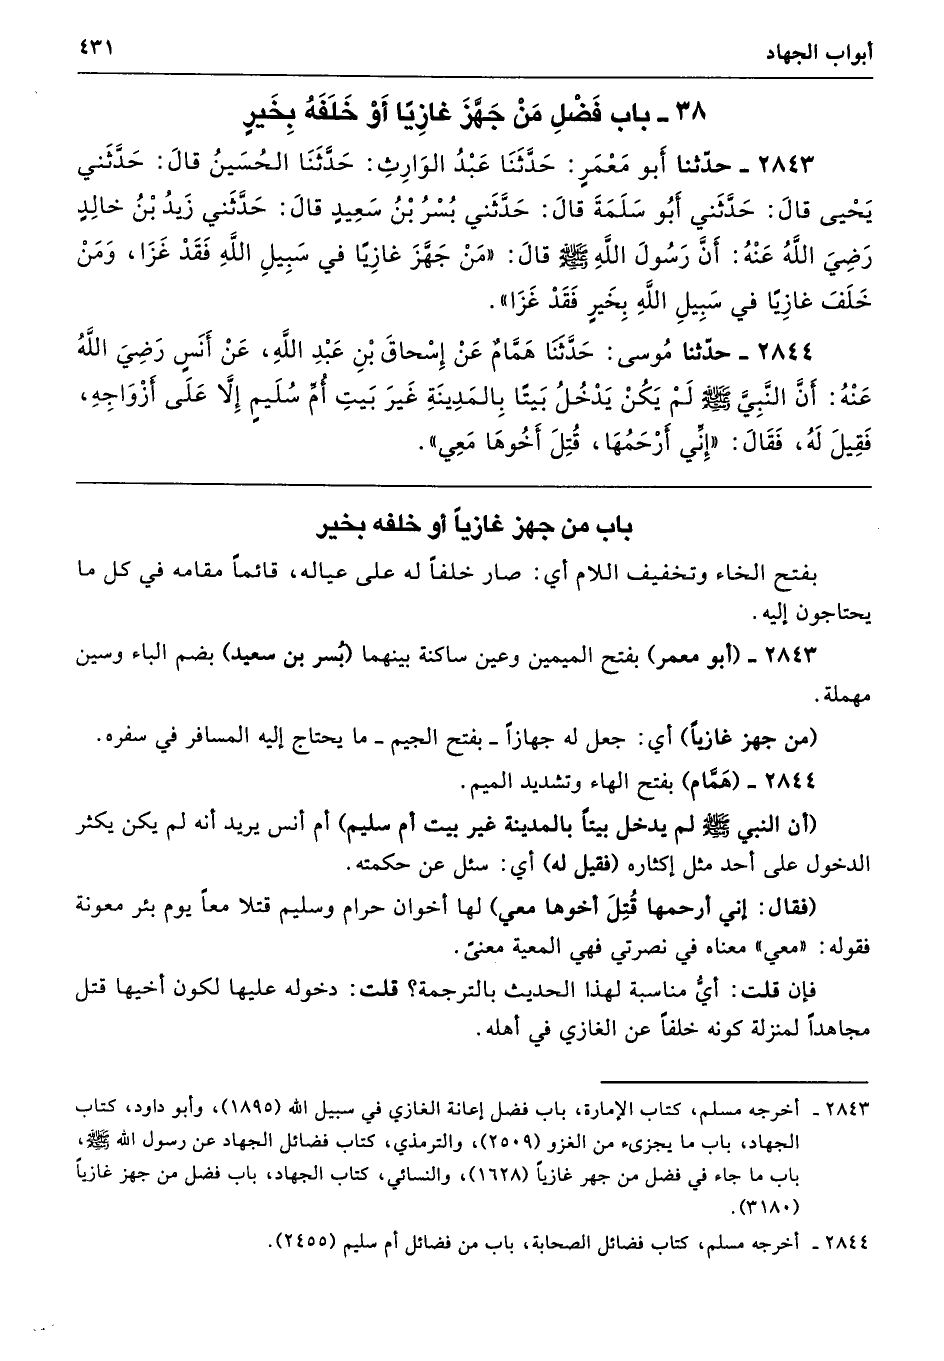 أبواب الجهاد
٤٣١
٣٨ ـ باب فَضْلِ مَنْ جَهَّزَ غازِيًا أَوْ خَلَفَهُ بِخَيرٍ
٢٨٤٣ ـ حدّثنا أَبو مَعْمَرٍ: حَدَّثَنَا عَبْدُ الوَارِثِ: حَدَّثَنَا الحُسَينُ قالَ: حَدَّثَني
يَحْيى قالَ: حَدَّثَني أَبُو سَلَمَةَ قالَ: حَدَّثَني بُسْرُ بْنُ سَعِيدٍ قالَ: حَدَّثَني زَيدُ بْنُ خالِدٍ
رَضِيَ اللَّهُ عَنْهُ: أَنَّ رَسُولَ اللَّهِ ﷺ قالَ: «مَنْ جَهَّزَ غازِيًا في سَبِيلِ اللَّهِ فَقَدْ غَزَا، وَمَنْ
خَلَفَ غازِيًا في سَبِيلِ اللَّهِ بِخَيرٍ فَقَدْ غَزَا».
٢٨٤٤ ـ حدّثنا مُوسى: حَدَّثَنَا هَمَّامٌ عَنْ إِسْحاقَ بْنِ عَبْدِ اللَّهِ، عَنْ أَنَسٍ رَضِيَ اللَّهُ
عَنْهُ: أَنَّ النَّبِيَّ ﷺ لَمْ يَكُنْ يَدْخُلُ بَيتًا بِالمَدِينَةِ غَيرَ بَيتِ أُمِّ سُلَيمٍ إِلَّا عَلَى أَزْوَاجِهِ،
فَقِيلَ لَهُ، فَقَالَ: «إِنِّي أَرْحَمُهَا، قُتِلَ أَخُوهَا مَعِي».
باب من جهز غازياً أو خلفه بخير
بفتح الخاء وتخفيف اللام أي: صار خلفاً له على عياله، قائماً مقامه في كل ما
يحتاجون إليه.
٢٨٤٣ ـ (أبو معمر) بفتح الميمين وعين ساكنة بينهما (بُسر بن سعيد) بضم الباء وسين
مهملة.
(من جهز غازياً) أي: جعل له جهازاً ـ بفتح الجيم ـ ما يحتاج إليه المسافر في سفره.
٢٨٤٤ ـ (هَمَّام) بفتح الهاء وتشديد الميم.
(أن النبي ﷺ لم يدخل بيتاً بالمدينة غير بيت أم سليم) أم أنس يريد أنه لم يكن يكثر
الدخول على أحد مثل إكثاره (فقيل له) أي: سئل عن حكمته.
(فقال: إني أرحمها قُتِلَ أخوها معي) لها أخوان حرام وسليم قتلا معاً يوم بئر معونة
فقوله: «معي» معناه في نصرتي فهي المعية معنىً.
فإن قلت: أيُّ مناسبة لهذا الحديث بالترجمة؟ قلت: دخوله عليها لكون أخيها قتل
مجاهداً لمنزلة كونه خلفاً عن الغازي في أهله.
٢٨٤٣ ـ أخرجه مسلم، كتاب الإمارة، باب فضل إعانة الغازي في سبيل الله (١٨٩٥)، وأبو داود، كتاب
الجهاد، باب ما يجزىء من الغزو (٢٥٠٩)، والترمذي، كتاب فضائل الجهاد عن رسول الله ﷺ،
باب ما جاء في فضل من جهر غازياً (١٦٢٨)، والنسائي، كتاب الجهاد، باب فضل من جهز غازياً
(٣١٨٠).
٢٨٤٤ ـ أخرجه مسلم، كتاب فضائل الصحابة، باب من فضائل أم سليم (٢٤٥٥).